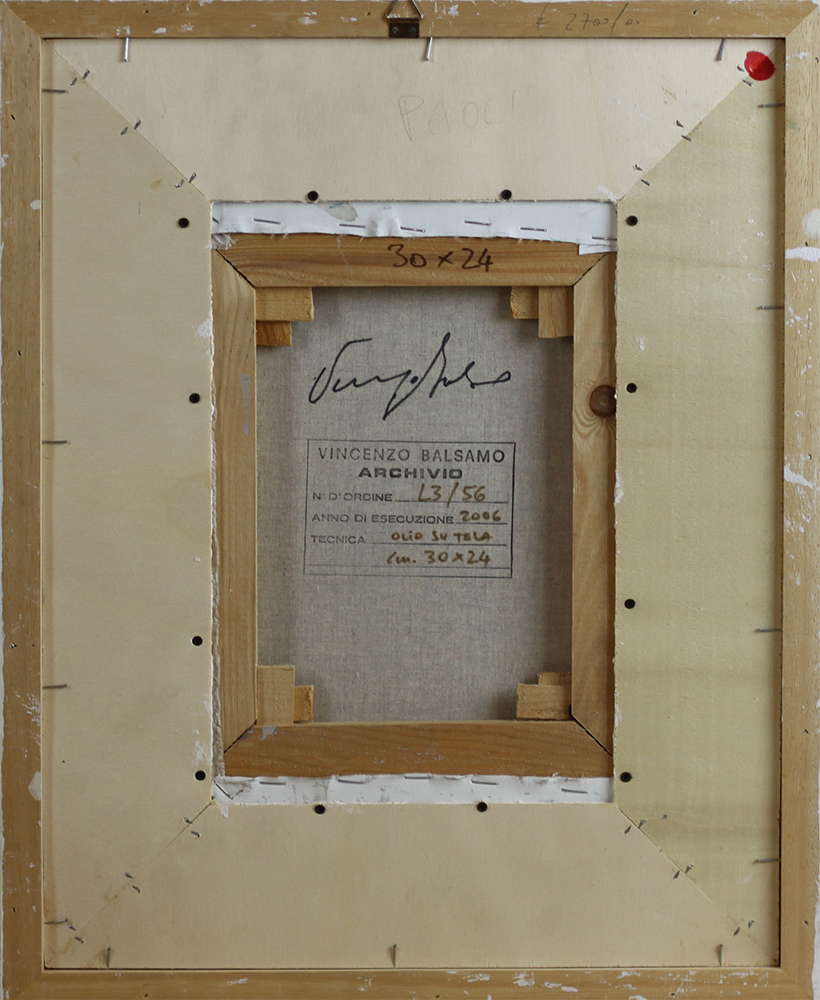 € 2700/00
PAOLI
30x24
VINCENZO BALSAMO
ARCHIVIO
N° D'ORDINE L3/56
ANNO DI ESECUZIONE 2006
TECNICA OLIO SU TELA
cm. 30x24